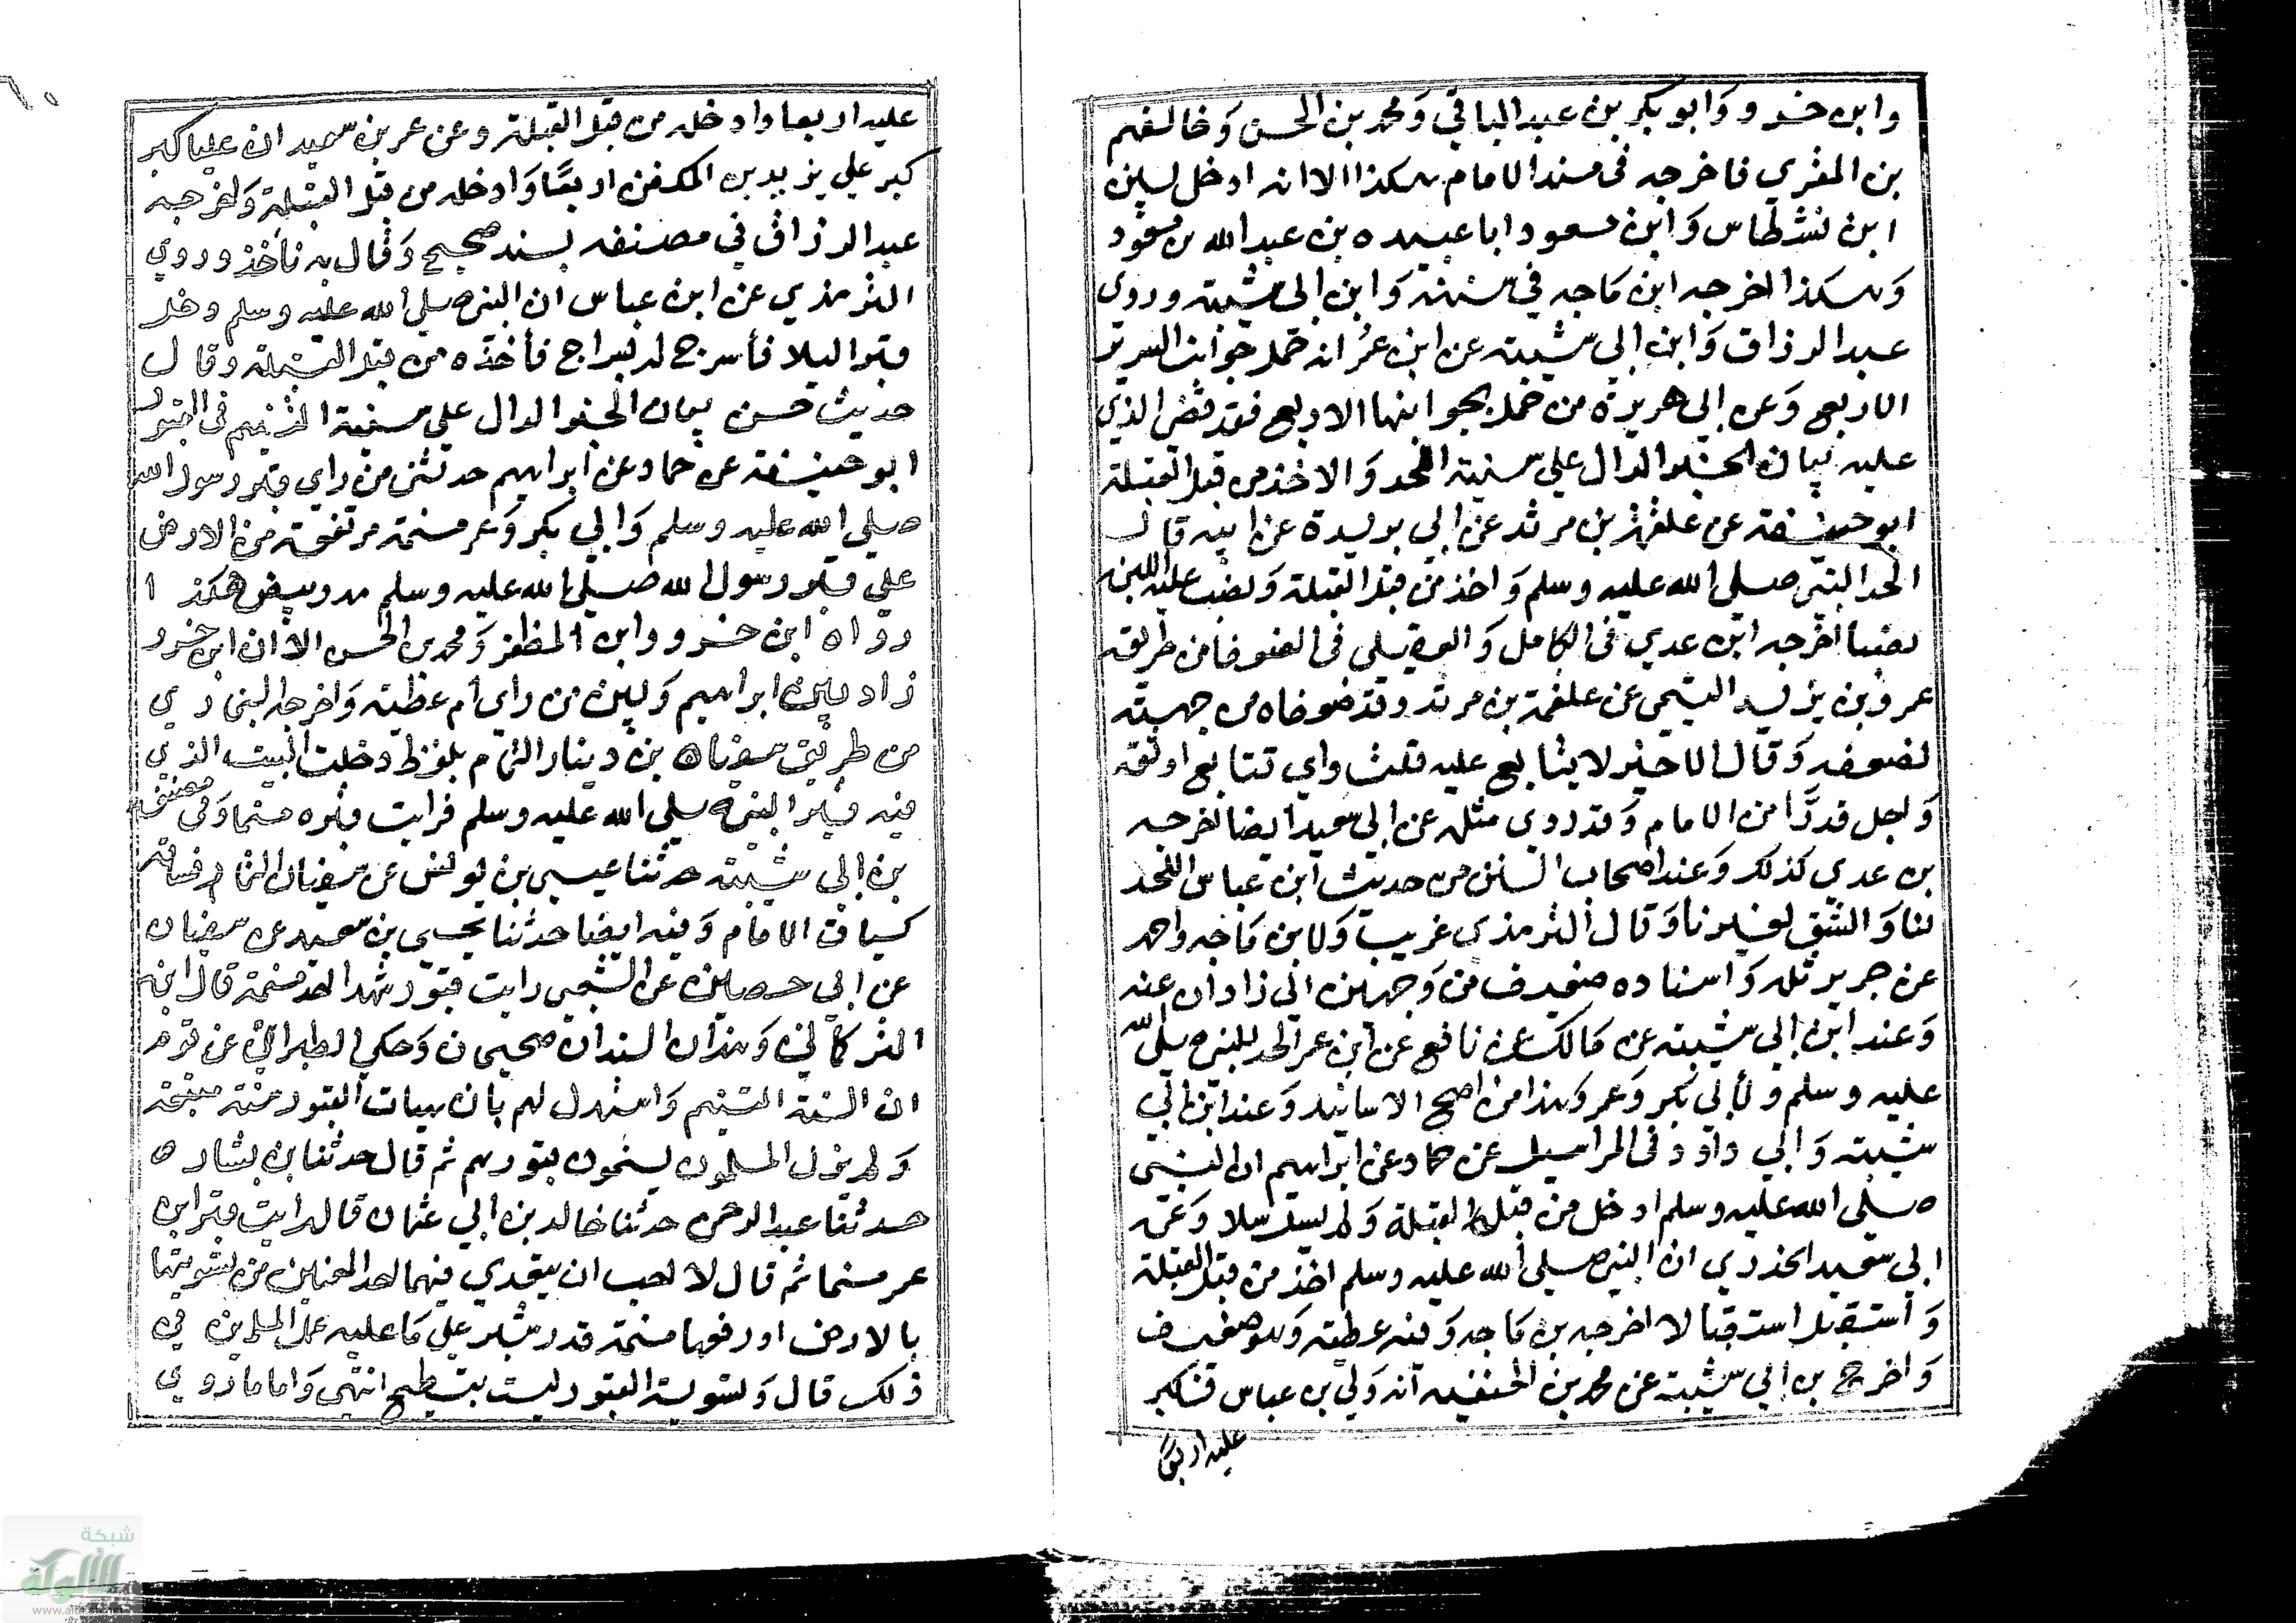 وابن خسرو وَابو بكر بن عبد الباقي وَمحمد بن الحسن وَخالفهم
بن المقري فاخرجه في مسند الامام هكذا الا انه ادخل بين
ابن نسطاس وَابن مسعود ابا عبيده بن عبد الله بن مسعود
وَهكذا اخرجه ابن ماجه في سننه وَابن ابي شيبه وروى
عبد الرزاق وَابن ابي شيبه عن ابن عمر انه حمل جوانب السرير
الاربع وَعن ابي هريرة من حمل بجوانبها الاربع فقد قضى الذي
عليه بيان الخبر الدال علي سنية اللحد وَالاخذ من قبل القبلة
ابو حنيفة عن علقمة بن مرثد عن ابي بريدة عن ابيه قال
الحد النبي صلي الله عليه وسلم وَاخذ من قبل القبلة وَنصب عليه اللبن
نصبا اخرجه ابن عدي في الكامل وَالعقيلي في الضعفا من طريق
عمرو بن يزيد التيمي عن علقمة بن مرثد وقد ضعفاه من جهة
لضعفه وَقال الاخير لا يتابع عليه قلت واي تتابع اوثق
وَاجل قدرًا من الامام وَقد روى مثله عن ابي سعيد ايضا اخرجه
بن عدي كذلك وَعند اصحاب السنن من حديث ابن عباس اللحد
لنا وَالشق لغيرنا وَقال الترمذي غريب وَلابن ماجه واحمد
عن جرير مثله وَاسناده ضعيف من وَجهين الي زاذان عنه
وَعند ابن ابي شيبه عن مالك عن نافع عن ابن عمر الحد للنبي صلي الله
عليه وسلم ولأبي بكر وَعمر وَهذا من اصح الاسانيد وَعند ابن ابي
شيبه وَابي داود في المراسيل عن حماد عن ابراهيم ان النبي
صلي الله عليه وسلم ادخل من قبل القبلة وَلم يسل سلا وَعن
ابي سعيد الخدري ان النبي صلي الله عليه وسلم اخذ من قبل القبلة
وَاستقبل استقبالا اخرجه بن ماجه وَفيه عطيه وَهو ضعيف
وَاخرج بن ابي شيبة عن محمد بن الحنفيه انه وَلي بن عباس فكبر
عليه اربعًا
عليه اربعا وادخله من قبل القبلة وعن عمر بن سعيد ان عليا كبر
كبر علي يزيد بن المكفف اربعًا وَادخله من قبل القبلة وَاخرجه
عبد الرزاق في مصنفه بسند صحيح وَقال به نأخذ وروي
الترمذي عن ابن عباس ان النبي صلي الله عليه وسلم دخل
قبرا ليلا فأسرج له بسراج فأخذه من قبل القبلة وقال
حديث حسن بيان الخبر الدال علي سنية التسنيم في القبور
ابو حنيفة عن حماد عن ابراهيم حدثني من راي قبر رسول الله
صلي الله عليه وسلم وَابي بكر وَعمر مسنمة مرتفعة من الارض
علي قبر رسول الله صلي الله عليه وسلم مدر بيض هكذا
رواه ابن خسرو وابن المظفر وَمحمد بن الحسن الا ان ابن خسرو
زاد بين ابراهيم وَبين من راي ام عطيه وَاخرجه البخاري
من طريق سفيان بن دينار التمام بلفظ دخلت البيت الذي
فيه قبر النبي صلي الله عليه وسلم فرايت قبره مسنما وَفي مصنف
بن ابي شيبة حدثنا عيسي بن يونس عن سفيان التمام فساقه
كسياق الامام وَفيه ايضا حدثنا يحيي بن سعيد عن سفيان
عن ابي حصين عن الشعبي رايت قبور شهدا احد مسنمة قال ابن
التركماني وَهذان السندان صحيحان وَحكي الطبراني عن قوم
ان السنة التسنيم وَاستدل لهم بان هيات القبور سنة متبعة
وَلم يزل المسلمون يسنمون قبورهم ثم قال حدثنا بن بشار
حدثنا عبد الرحمن حدثنا خالد بن ابي عثمان قال رايت قبر ابن
عمر مسنما ثم قال لا احب ان يتعدي فيها احد المعنيين من تسويتها
بالارض او رفعها مسنمة قدر شبر علي ما عليه عمل المسلمين في
ذلك قال وَتسوية القبور ليست بتسطيح انتهى وَاما ما روي